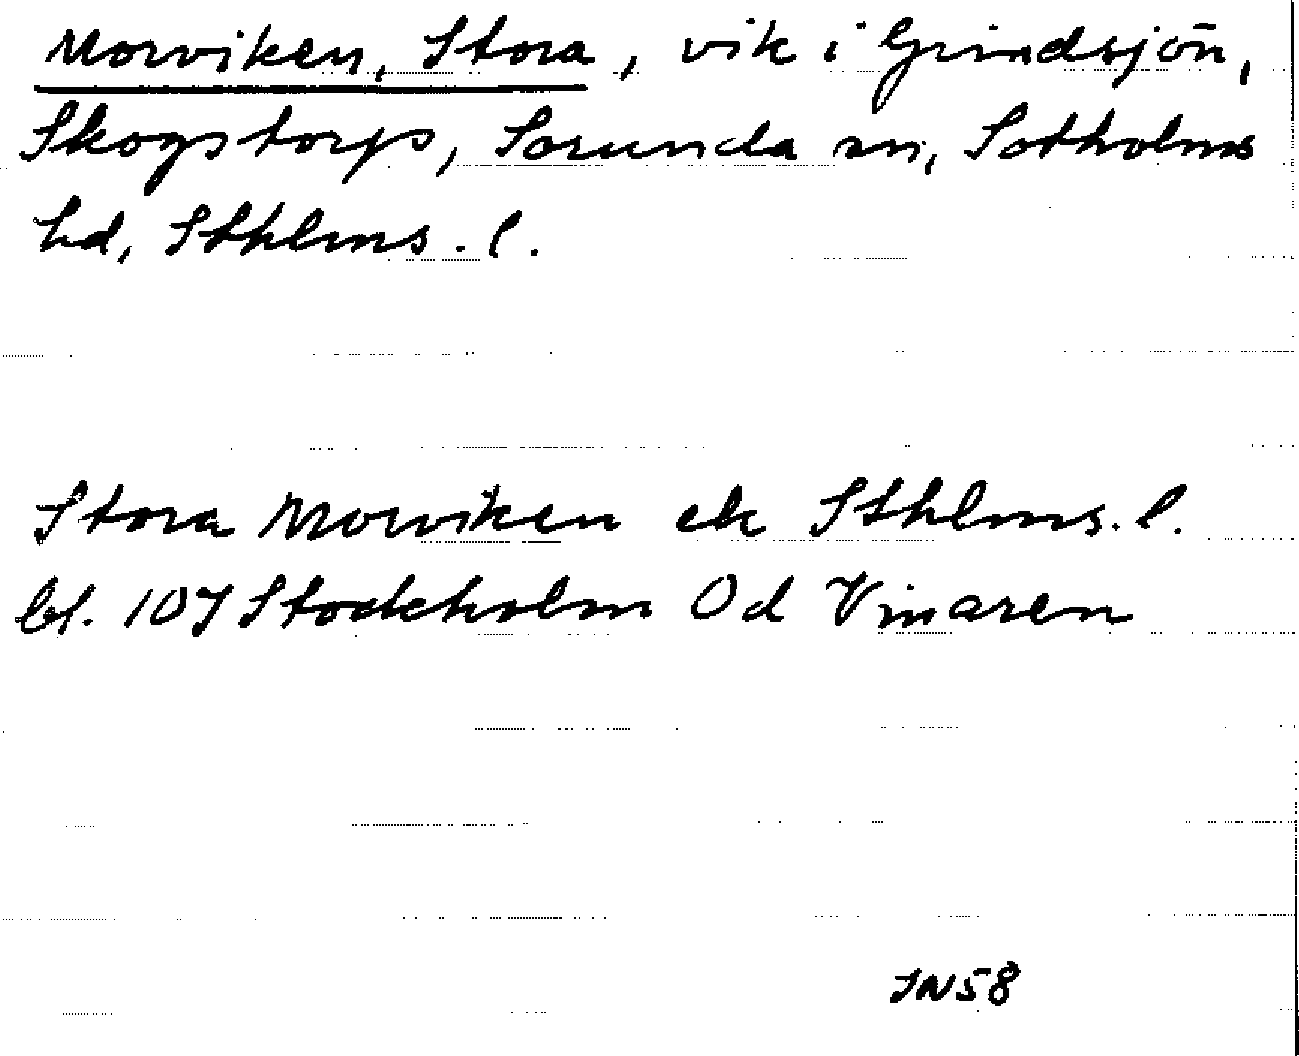 Morviken, Stora, vik i Grindsjön,
Skogstorp, Sorunda sn, Sotholms
hd, Sthlms. l.
Stora Morviken ek Sthlms. l.
bl. 107 Stockholm Od Vinaren
JN58